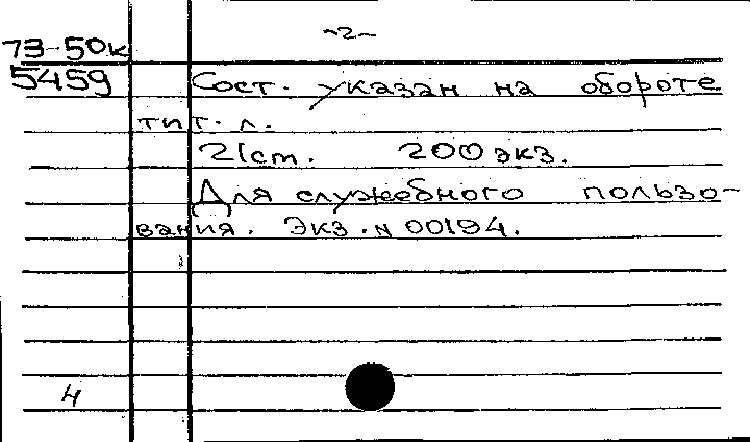 -2-
73-50к
5459 Сост. указан на обороте
тит. л.
21 ст. 200 экз.
Для служебного пользо-
вания. Экз. N 00194.
4